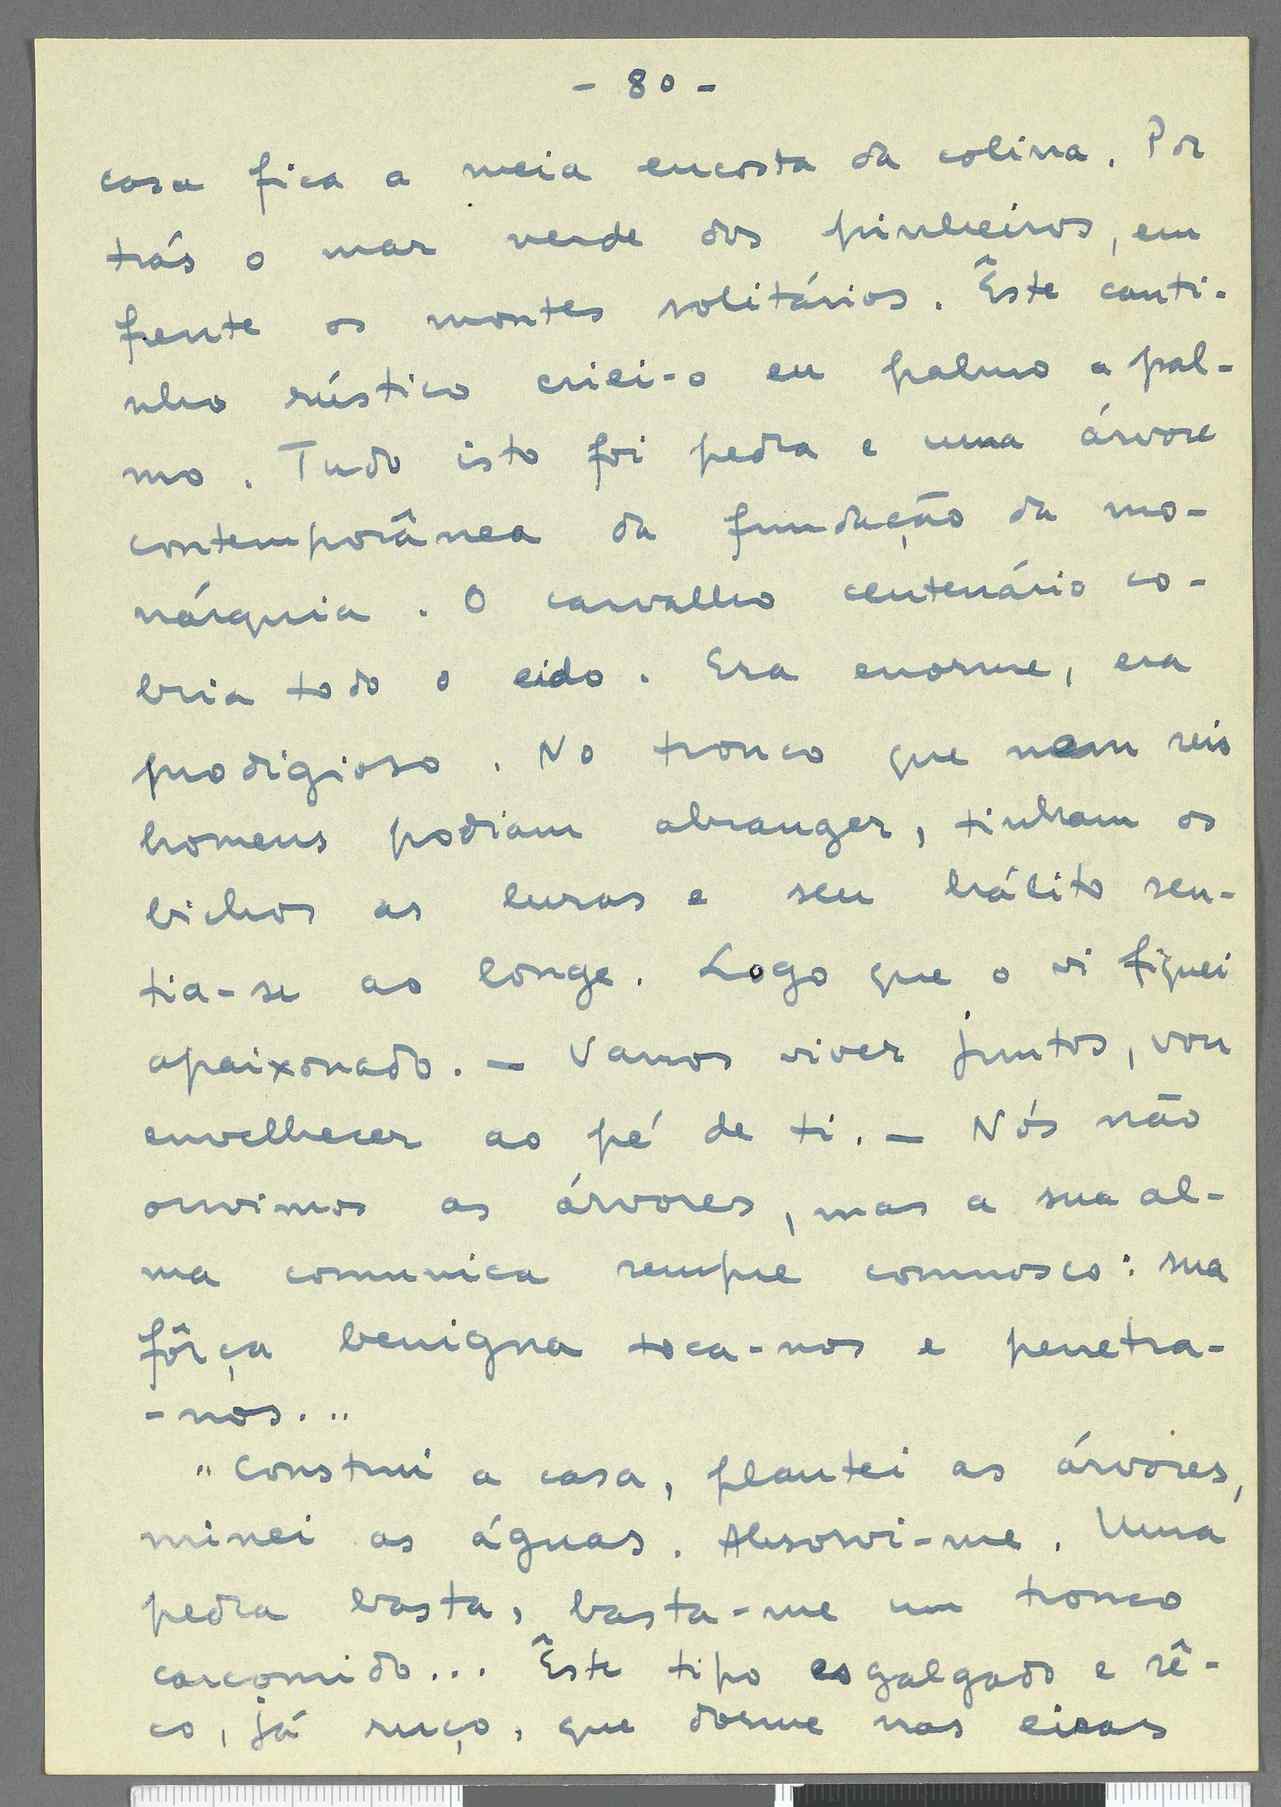 - 80 -
casa fica a meia encosta da colina. Por
trás o mar verde dos pinheiros, em
frente os montes solitários. Êste canti-
nho rústico criei-o eu palmo a pal-
mo. Tudo isto foi pedra e uma árvore
contemporânea da fundação da mo-
nárquia. O carvalho centenário co-
bria todo o eido. Era enorme, era
prodigioso. No tronco que nem seis
homens podiam abranger, tinham os
bichos as luras e seu hálito sen-
tia-se ao longe. Logo que o vi fiquei
apaixonado. — Vamos viver juntos, vou
envelhecer ao pé de ti. — Nós não
ouvimos as árvores, mas a sua al-
ma comunica sempre comnosco: sua
fôrça benigna toca-nos e penetra-
-nos."
"Construi a casa, plantei as árvores,
minei as águas. Absorvi-me. Uma
pedra basta, basta-me um tronco
carcomido... Êste tipo esgalgado e sê-
co, já ruço, que dorme nas eiras